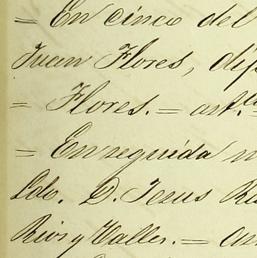 = En cinco del
Juan Flores, dij
= Flores. = art.
= En seguida n
Ldo. D. Jesus Re
Rios y Valles. = An